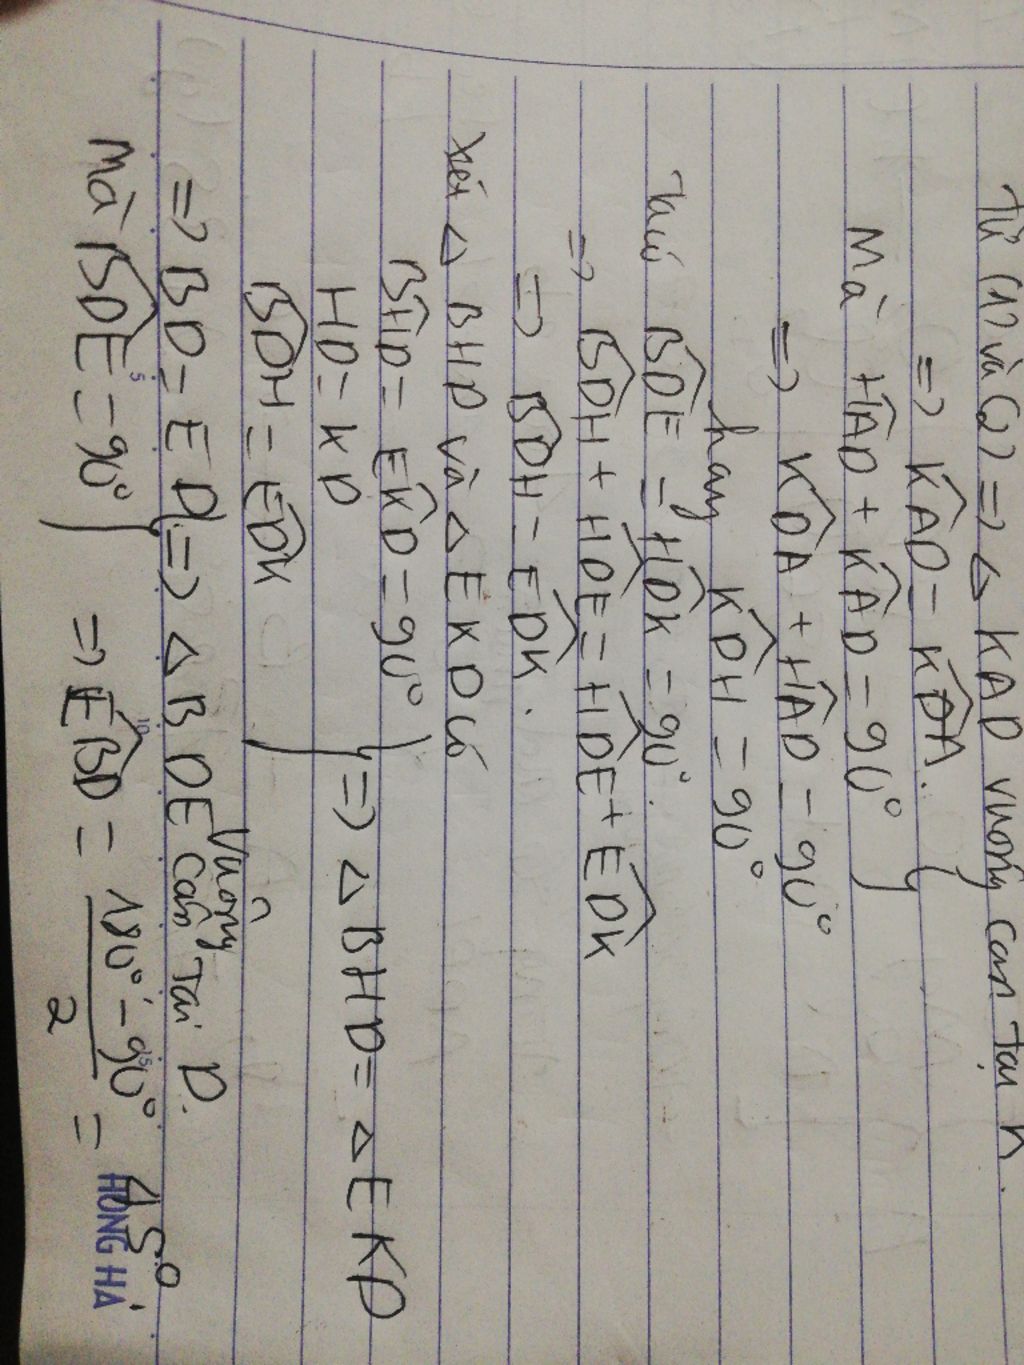 Từ (1) và (2) => Δ KAD vuông cân tại K.
=> K̂AD = K̂DA.
Mà ĤAD + K̂AD = 90°
=> K̂DA + ĤAD = 90°
hay K̂DH = 90°
Ta có B̂DE = ĤDK = 90°.
=> B̂DH + ĤDE = ĤDE + ÊDK
=> B̂DH = ÊDK.
Xét Δ BHD và Δ EKD có
B̂HD = ÊKD = 90°
HD = KD => Δ BHD = Δ EKD
B̂DH = ÊDK
=> BD = ED => Δ BDE vuông cân Tại D.
Mà B̂DE = 90° => ÊBD = (180° - 90°)/2 = 45°
HỒNG HÀ